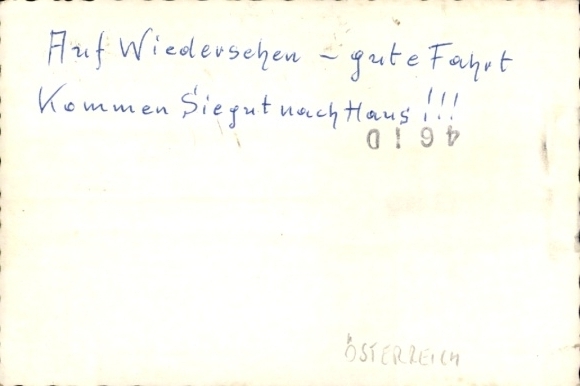 Auf Wiedersehen – gute Fahrt
Kommen Sie gut nach Haus !!!
ÖSTERREICH